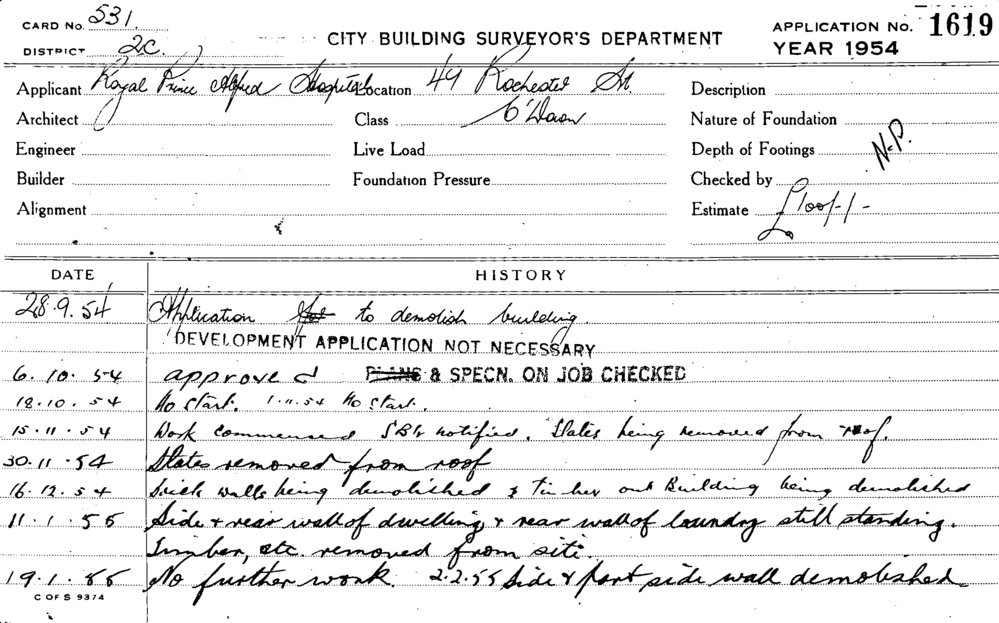 CARD No. 531.
DISTRICT 2C.
CITY BUILDING SURVEYOR'S DEPARTMENT
APPLICATION No. 1619
YEAR 1954
Applicant Royal Prince Alfred Hospital Location 49 Rochester St. Description
Architect Class C'Down Nature of Foundation
Engineer Live Load Depth of Footings N.P.
Builder Foundation Pressure Checked by
Alignment Estimate £100/-/-
DATE HISTORY
28.9.54 Application to demolish building.
DEVELOPMENT APPLICATION NOT NECESSARY
6.10.54 approved PLANS & SPECN. ON JOB CHECKED
18.10.54 No start. 1.11.54 No start.
15.11.54 Work commenced notified. Slates being removed from roof.
30.11.54 Slates removed from roof
16.12.54 Brick walls being demolished & Timber out Building being demolished
11.1.55 Side & rear wall of dwelling & rear wall of laundry still standing.
Timber, etc. removed from site.
19.1.55 No further work. 2.2.55 Side & part side wall demolished
C OF S 9374